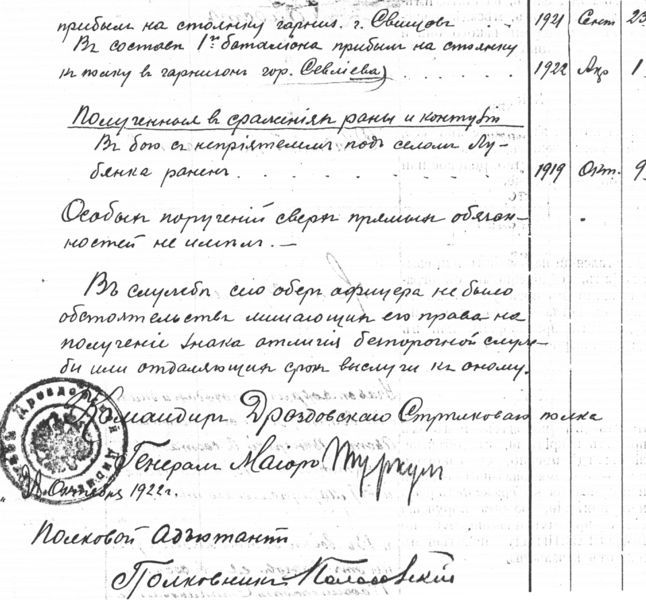 прибылъ на стоянку гарниз. г. Свищовъ 1921 Сент 23
Въ составѣ 1го баталіона прибылъ на стоянку
къ полку въ гарнизонъ гор. Севліева) 1922 Апр 1
Полученныя въ сраженіяхъ раны и контузіи
Въ бою съ непріятелемъ подъ селомъ Лу-
бянка раненъ 1919 Окт. 9
Особыхъ порученій сверхъ прямыхъ обязан-
ностей не имѣлъ. —
Въ службѣ сего оберъ офицера не было
обстоятельствъ лишающихъ его права на
полученіе знака отличія безпорочной служ-
бы или отдаляющихъ срокъ выслуги къ оному.
Командиръ Дроздовскаго Стрѣлковаго полка
Генералъ Маіоръ Туркулъ
Октября 1922 г.
Полковой Адъютантъ
Полковникъ